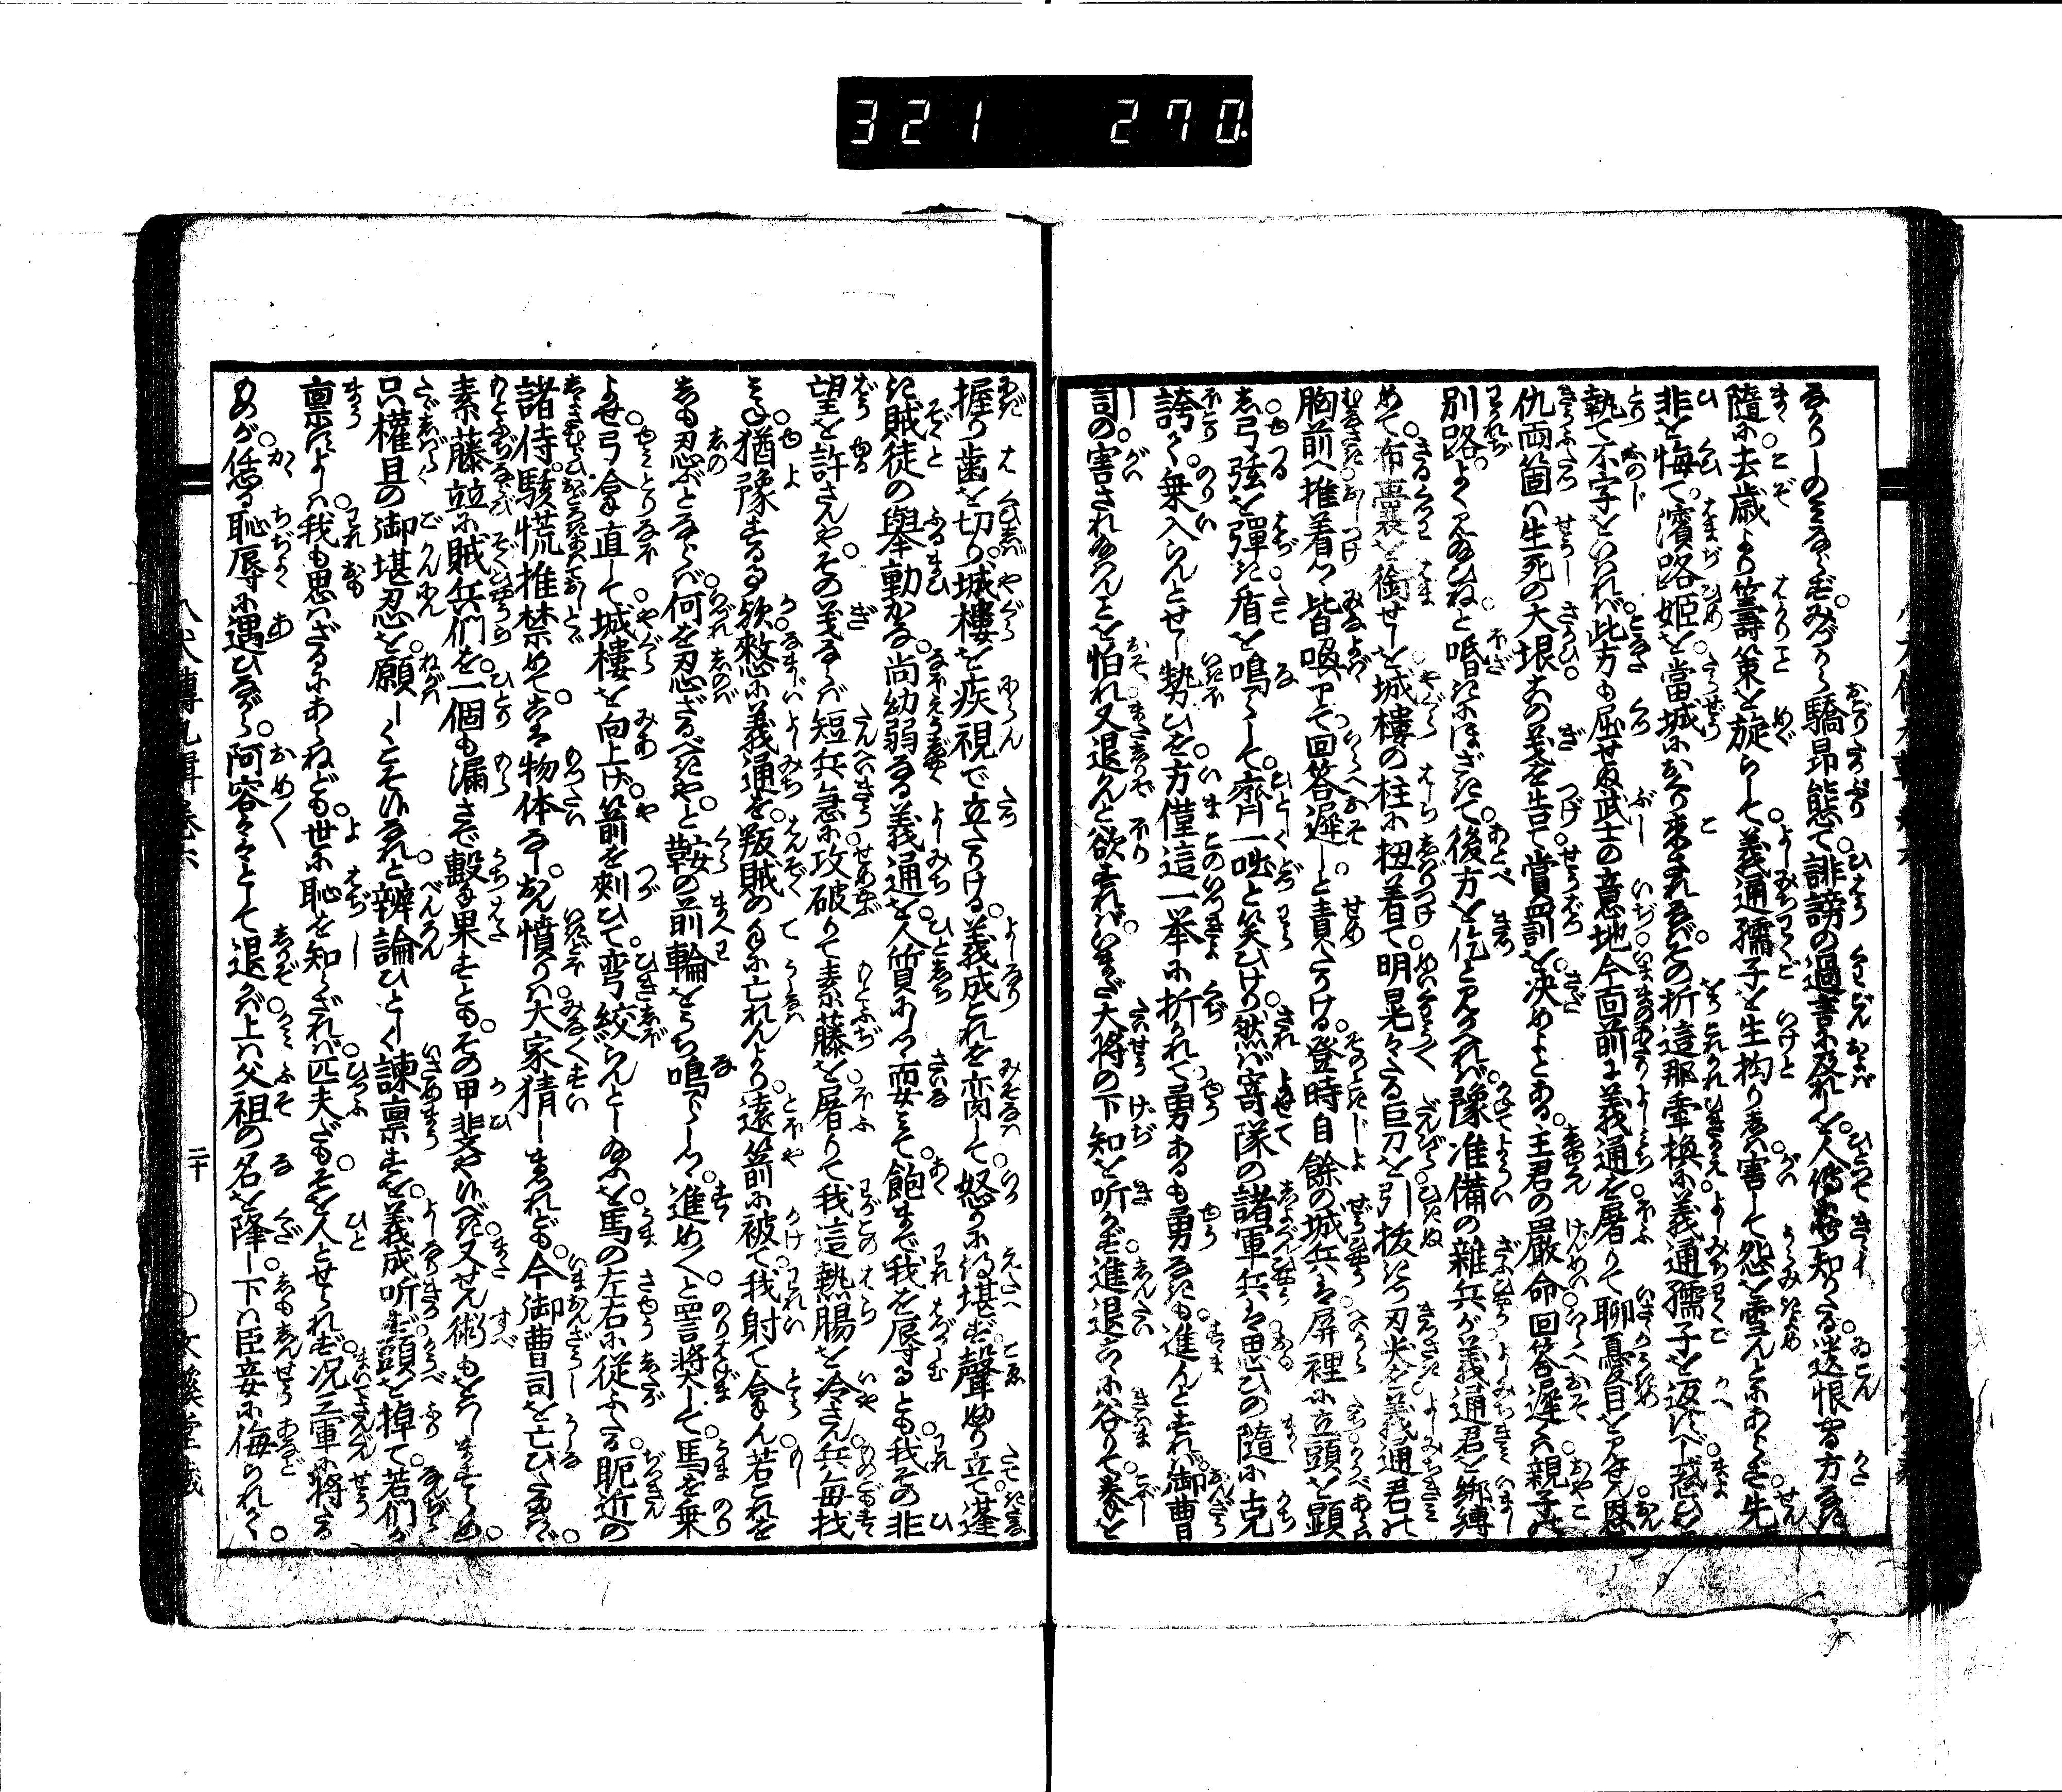 321 270
なりしのみならず。みづから驕昂態て。誹謗の過言に及れしを。人傳に知りたる。遺恨やる方なき
隨に。去歳より籌策を旋らして。義通孺子を生拘りしは。害して怨を雪んとにあらず。先
非を悔て。濱路姫を。當城におくり来されなば。その折這那牽換に。義通孺子を返すべし。惑ひを
執て不字といはれば。此方も屈せぬ武士の意地。今面前に義通を屠りて。聊憂目を見せん。恩
仇両箇は生死の大垠。この義を告て賞罰を。決めよとある。主君の嚴命。回答遲くは親子の
別路。よく見給ひねと。噆きにほざきて。後方を佶と見かへれば。豫准備の雑兵が。義通君を綁縛
めて。布囊を銜せしを。城樓の柱に杻着て。明晃々たる巨刀を引拔きつ。刃尖を義通君の
胸前へ推着つ。皆喚つて回答遲しと責たりける。登時自餘の城兵は。屏裡に立頭を顕
し。弓弦を彈き。盾を鳴らして。齊一咄と笑ひけり。然ば寄隊の諸軍兵は。思ひの隨に克
誇り。乗入らんとせし勢ひを。方僅這一挙に折れて。勇あるも勇なきも。進んとすれば。御曹
司の害され給はんことを怕れ。又退んと欲すれば。いまだ大將の下知を听かず。進退こゝに谷りて。拳を
握り歯を切り。城樓を疾視て立たりける。義成これを向して。怒りに得堪ず。聲
賊徒の舉動かな。尚幼弱なる義通を。人質にしつ而妾みて。飽まで我を辱るとも。我その非
望を許さんや。その義ならば短兵急に。攻破りて素藤を。屠りて我這熱腸を冷さん。兵毎找
猶豫する歟。憖に義通を。叛賊の手に亡れんより。遠箭に被て我射て拿ん。若これを
しも忍ぶとならば。何を忍ざるべきやと。鞍の前輪をうち鳴らしつ。進めと罵奨して。馬を乗
よせ弓拿直して。城樓を向上げ。箭を刺ひて彎絞らんとし給ふを。馬の左右に従ふたる。昵近の
諸侍。駭慌推禁めて。こは物体なし。おん憤りは大家猜しまゐれども。今御曹司を亡ひ給はゞ。
素藤並に賊兵們を。一個も漏さで。擊果すとも。その甲斐やはべき。又せん術もをはしまさゞらめ。
只權且の御堪忍を。願しくこそ侍れと。辨論ひとしく諫稟すを。義成听ず頭を掉て。若們が
稟すよしは。我も思はざるにあらねども。世に恥を知らざれば。匹夫だもそを人とせられず。况三軍に將たる
ものが。恁る恥辱に遇ひながら。阿容々々として退かば。上は父祖の名を降し。下は臣妾に侮られて。
二十